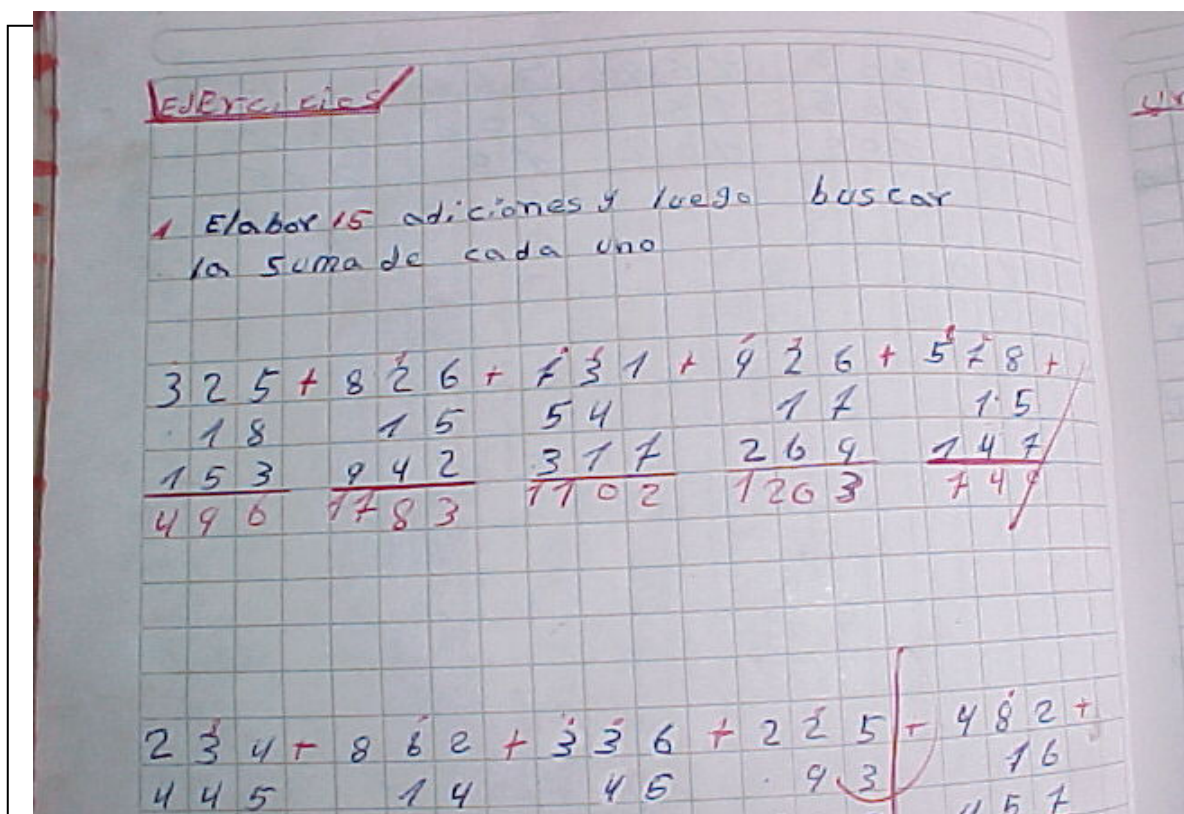 Ejercicios
1 Elabor 15 adiciones y luego buscar
la suma de cada uno
325 + 826 + 731 + 926 + 578 +
18 15 54 17 15
153 942 317 269 147
496 1783 1102 1203 749
234 + 862 + 336 + 225 + 482 +
445 14 45 93 16
457